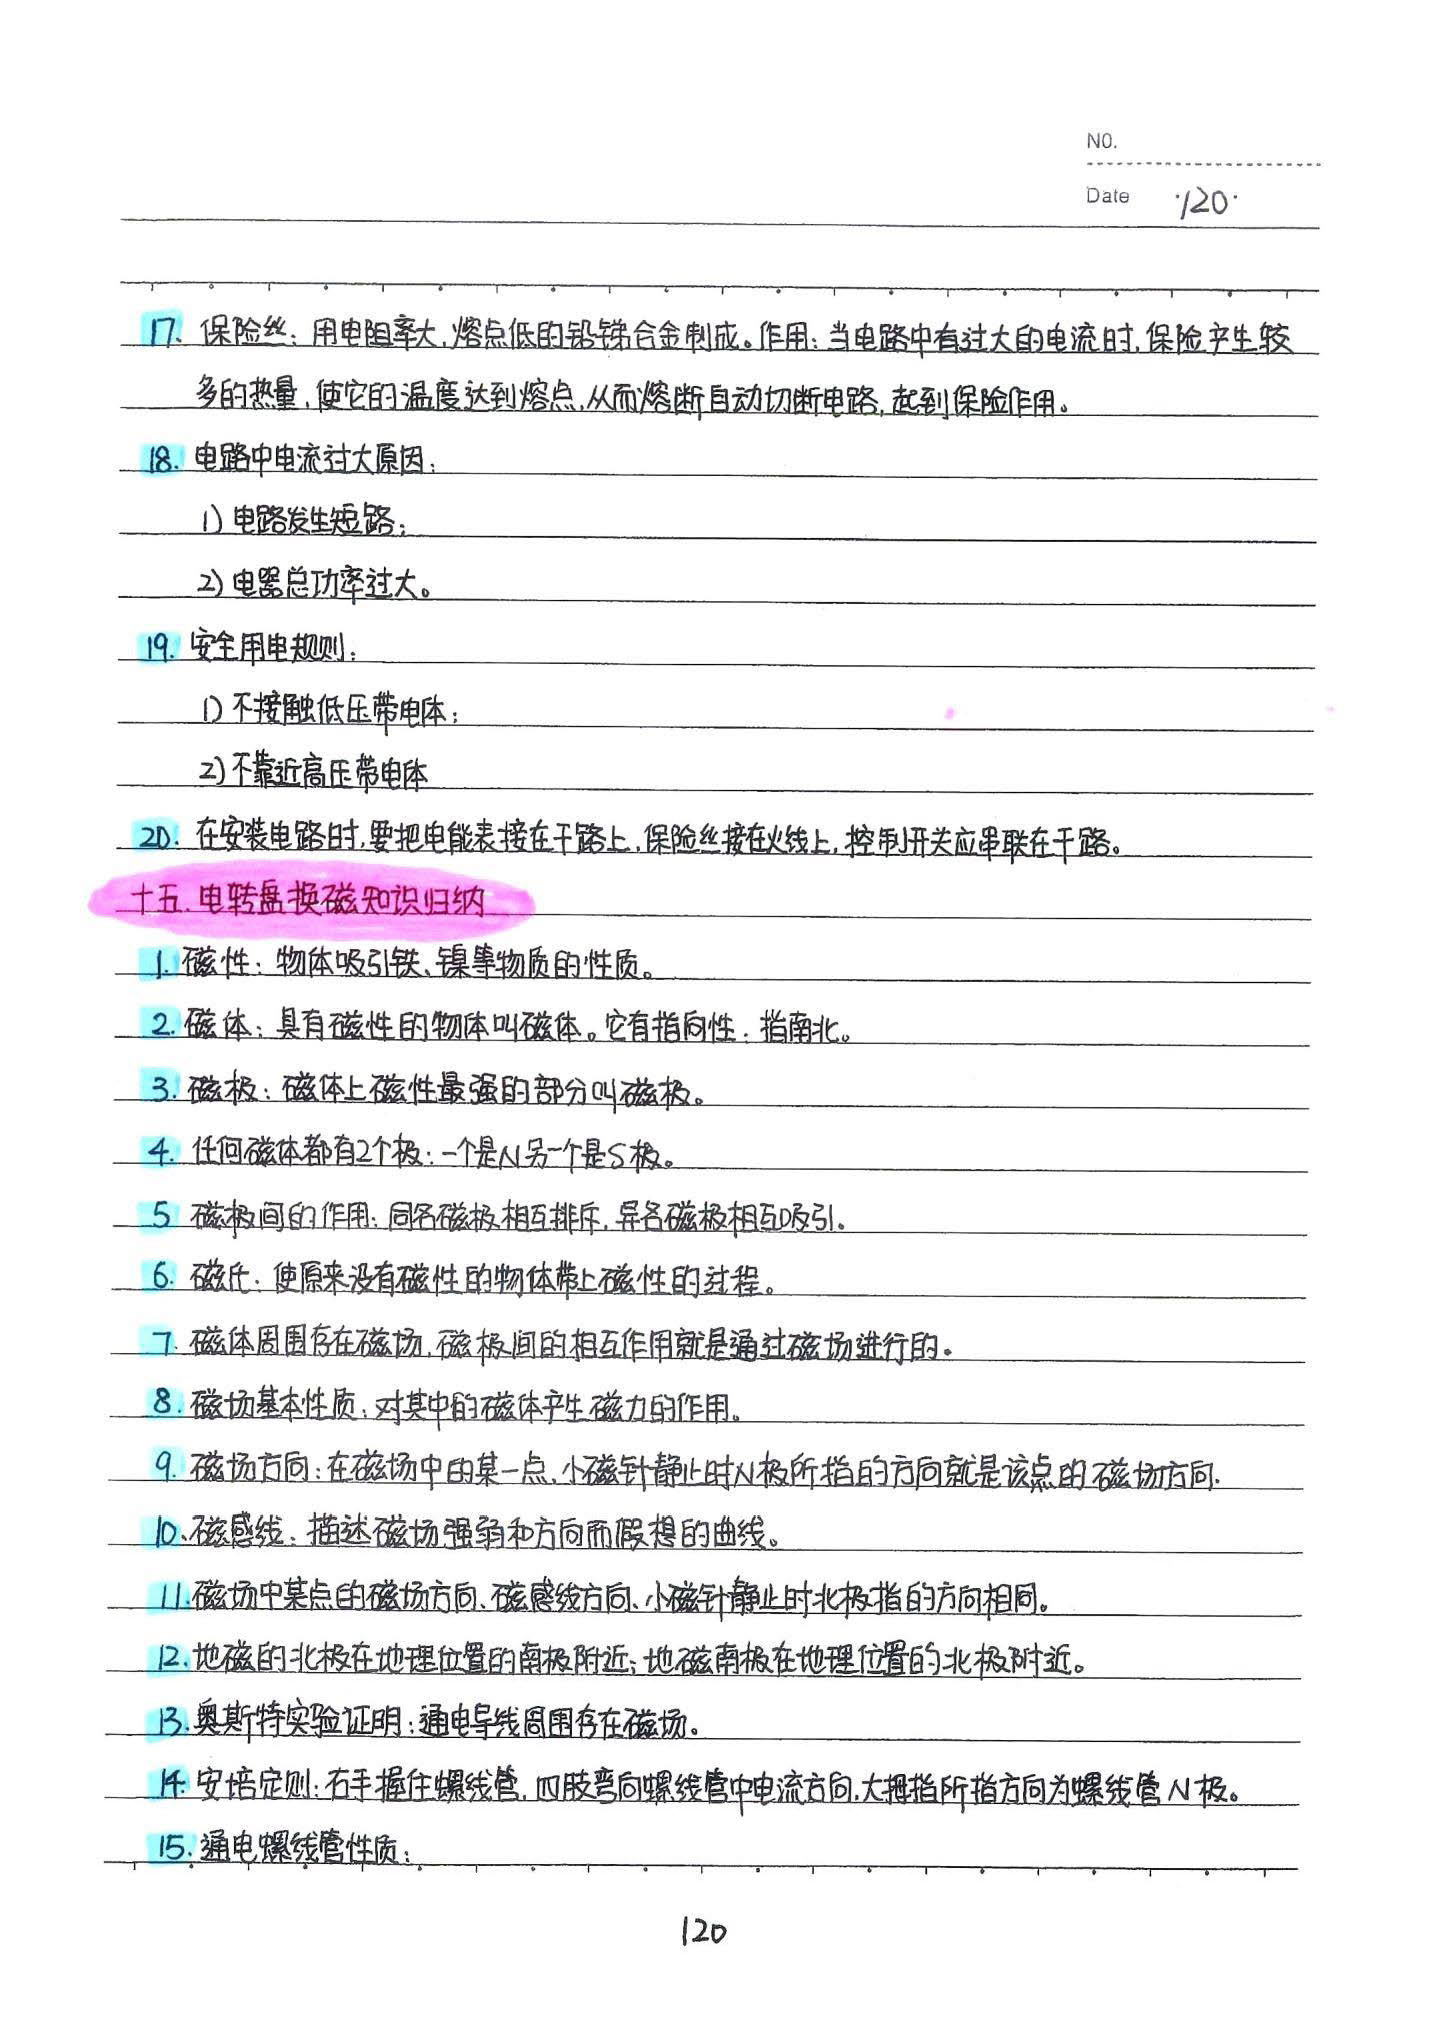 NO.
Date ·120·
17. 保险丝：用电阻率大，熔点低的铅锑合金制成。作用：当电路中有过大的电流时，保险产生较
多的热量，使它的温度达到熔点，从而熔断自动切断电路，起到保险作用。
18. 电路中电流过大原因：
1) 电路发生短路；
2) 电器总功率过大。
19. 安全用电规则：
1) 不接触低压带电体；
2) 不靠近高压带电体
20. 在安装电路时，要把电能表接在干路上，保险丝接在火线上，控制开关应串联在干路。
十五. 电转盘换磁知识归纳
1. 磁性：物体吸引铁、镍等物质的性质。
2. 磁体：具有磁性的物体叫磁体。它有指向性：指南北。
3. 磁极：磁体上磁性最强的部分叫磁极。
4. 任何磁体都有2个极：一个是N另一个是S极。
5 磁极间的作用：同名磁极相互排斥，异名磁极相互吸引。
6. 磁氏：使原来没有磁性的物体带上磁性的过程。
7. 磁体周围存在磁场，磁极间的相互作用就是通过磁场进行的。
8. 磁场基本性质：对其中的磁体产生磁力的作用。
9. 磁场方向：在磁场中的某一点，小磁针静止时N极所指的方向就是该点的磁场方向.
10、磁感线：描述磁场强弱和方向而假想的曲线。
11. 磁场中某点的磁场方向、磁感线方向、小磁针静止时北极指的方向相同。
12. 地磁的北极在地理位置的南极附近；地磁南极在地理位置的北极附近。
13. 奥斯特实验证明：通电导线周围存在磁场。
14. 安培定则：右手握住螺线管，四肢弯向螺线管中电流方向，大拇指所指方向为螺线管N极。
15. 通电螺线管性质：
120